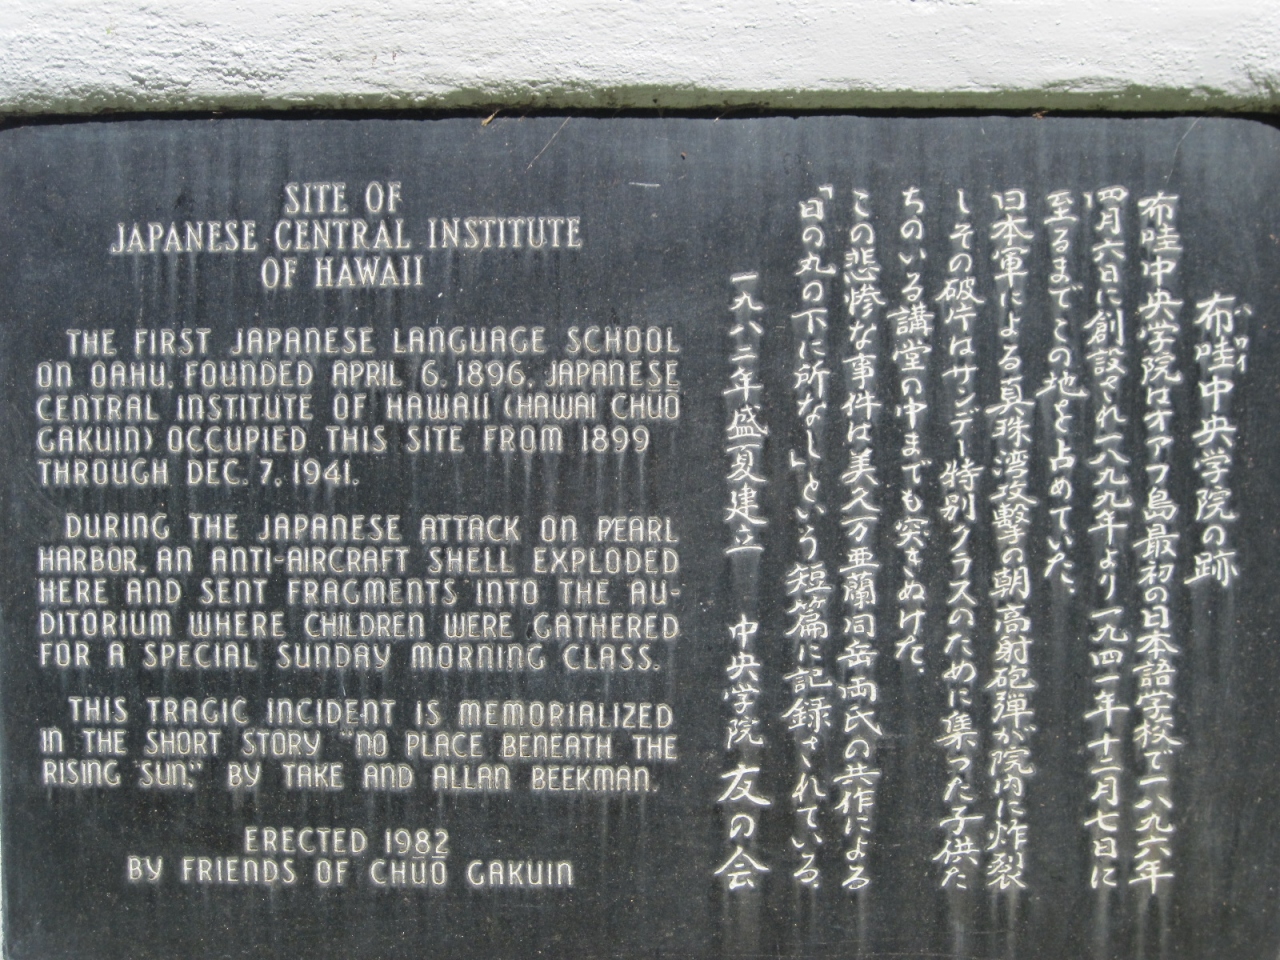 SITE OF
JAPANESE CENTRAL INSTITUTE
OF HAWAII
THE FIRST JAPANESE LANGUAGE SCHOOL
ON OAHU, FOUNDED APRIL 6, 1896, JAPANESE
CENTRAL INSTITUTE OF HAWAII (HAWAI CHŪŌ
GAKUIN) OCCUPIED THIS SITE FROM 1899
THROUGH DEC. 7, 1941.
DURING THE JAPANESE ATTACK ON PEARL
HARBOR, AN ANTI-AIRCRAFT SHELL EXPLODED
HERE AND SENT FRAGMENTS INTO THE AU-
DITORIUM WHERE CHILDREN WERE GATHERED
FOR A SPECIAL SUNDAY MORNING CLASS.
THIS TRAGIC INCIDENT IS MEMORIALIZED
IN THE SHORT STORY "NO PLACE BENEATH THE
RISING SUN," BY TAKE AND ALLAN BEEKMAN.
ERECTED 1982
BY FRIENDS OF CHŪŌ GAKUIN
布哇中央学院の跡
ハワイ
布哇中央学院はオアフ島最初の日本語学校で一八九六年
四月六日に創設され一八九九年より一九四一年十二月七日に
至るまでこの地を占めていた。
日本軍による真珠湾攻撃の朝高射砲弾が院内に炸裂
しその破片はサンデー特別クラスのために集った子供た
ちのいる講堂の中までも突きぬけた。
この悲惨な事件は美久万亜蘭同岳両氏の共作による
「日の丸の下に所なし」という短篇に記録されている。
一九八二年盛夏建立 中央学院 友の会